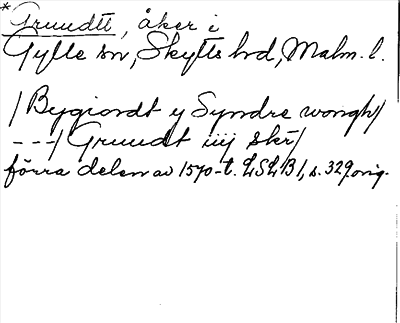 *Gruudtt, åker i
Gylle sn, Skytts hd, Malm. l.
/Bygiordt y Syndre wongh/
---/Gruudt iiij skr/
förra delen av 1570-t. LSLB 1, s. 329 orig.